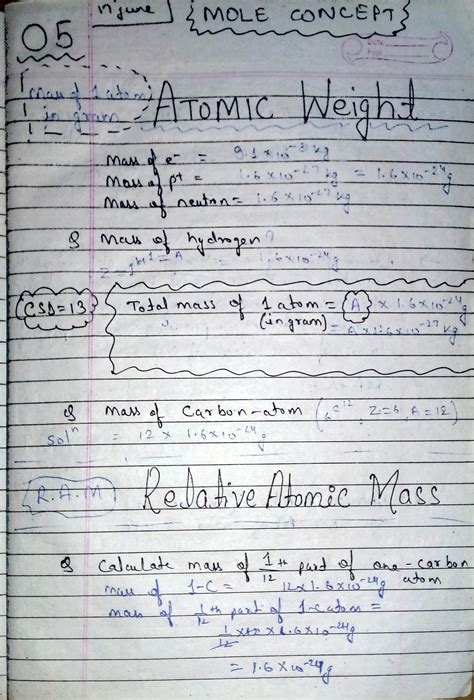 11 June
{ MOLE CONCEPT }
05
Mass of 1 atom
in gram
ATOMIC Weight
Mass of e⁻ = 9.1 x 10⁻³¹ kg
Mass of p⁺ = 1.6 x 10⁻²⁷ kg = 1.6 x 10⁻²⁴ g
Mass of neutron = 1.6 x 10⁻²⁷ kg
Q Mass of hydrogen?
= 1.6 x 10⁻²⁴ g
CSD = 13
Total mass of 1 atom = A x 1.6 x 10⁻²⁴ g
(in gram) = A x 1.6 x 10⁻²⁷ kg
Q Mass of Carbon-atom (₆C¹², Z=6, A=12)
Solⁿ = 12 x 1.6 x 10⁻²⁴ g
R.A.M Relative Atomic Mass
Q Calculate mass of 1/12 th part of one-carbon
atom
mass of 1-C = 12 x 1.6 x 10⁻²⁴ g
mass of 1/12 th part of 1-C atom =
1/12 x 12 x 1.6 x 10⁻²⁴ g
= 1.6 x 10⁻²⁴ g